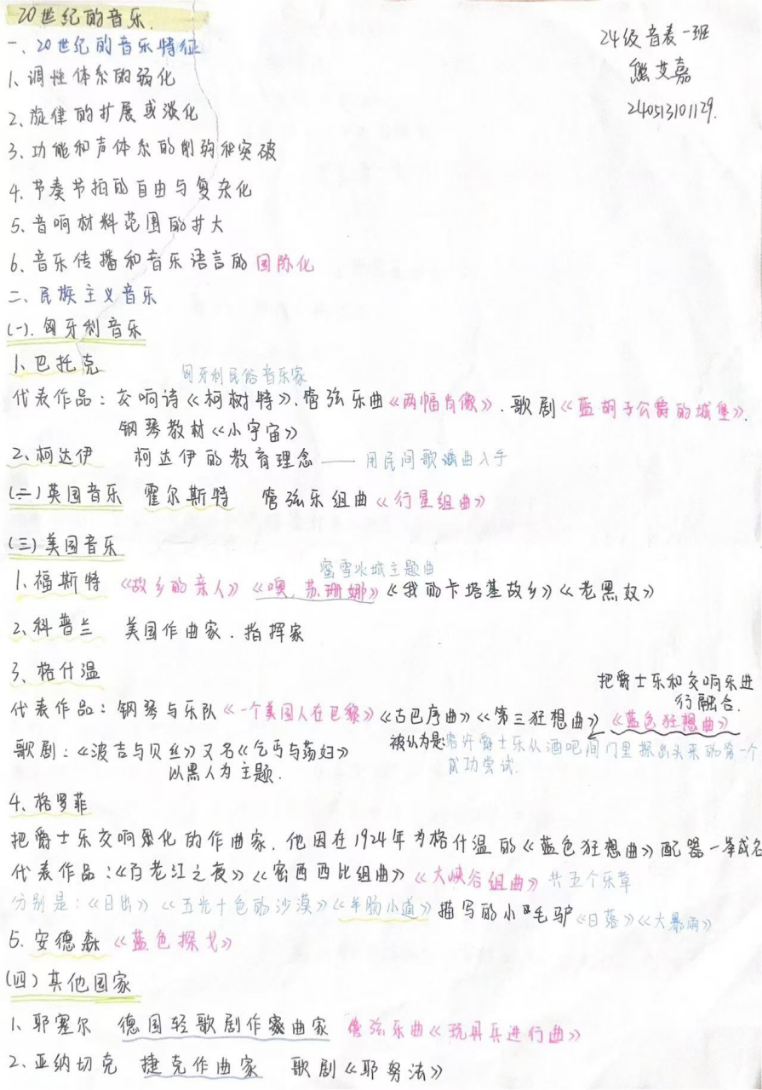 20世纪的音乐.
24级音表一班
熊艾嘉
240513101129.
一、20世纪的音乐特征
1、调性体系的弱化
2、旋律的扩展或淡化
3、功能和声体系的削弱和突破
4、节奏节拍的自由与复杂化
5、音响材料范围的扩大
6、音乐传播和音乐语言的国际化
二、民族主义音乐
(一).匈牙利音乐
1、巴托克
匈牙利民俗音乐家
代表作品：交响诗《柯树特》、管弦乐曲《两幅肖像》.歌剧《蓝胡子公爵的城堡》.
钢琴教材《小宇宙》
2、柯达伊 柯达伊的教育理念——用民间歌谣曲入手
(二)英国音乐 霍尔斯特 管弦乐组曲《行星组曲》
(三)美国音乐
蜜雪冰城主题曲
1、福斯特 《故乡的亲人》《噢,苏珊娜》《我的卡塔基故乡》《老黑奴》
2、科普兰 美国作曲家.指挥家
3、格什温
把爵士乐和交响乐进行融合.
代表作品：钢琴与乐队《一个美国人在巴黎》《古巴序曲》《第三狂想曲》《蓝色狂想曲》
歌剧：《波吉与贝丝》又名《乞丐与荡妇》
以黑人为主题.
被认为是:爵士乐从酒吧间门里探出头来的第一个
成功尝试.
4、格罗菲
把爵士乐交响乐化的作曲家.他因在1924年为格什温的《蓝色狂想曲》配器一举成名
代表作品：《百老汇之夜》《密西西比组曲》《大峡谷组曲》共五个乐章
分别是：《日出》《五光十色的沙漠》《羊肠小道》描写的小毛驴《日落》《大暴雨》
5、安德森《蓝色探戈》
(四)其他国家
1、耶塞尔 德国轻歌剧作曲家 管弦乐曲《玩具兵进行曲》
2、亚纳切克 捷克作曲家 歌剧《耶努法》